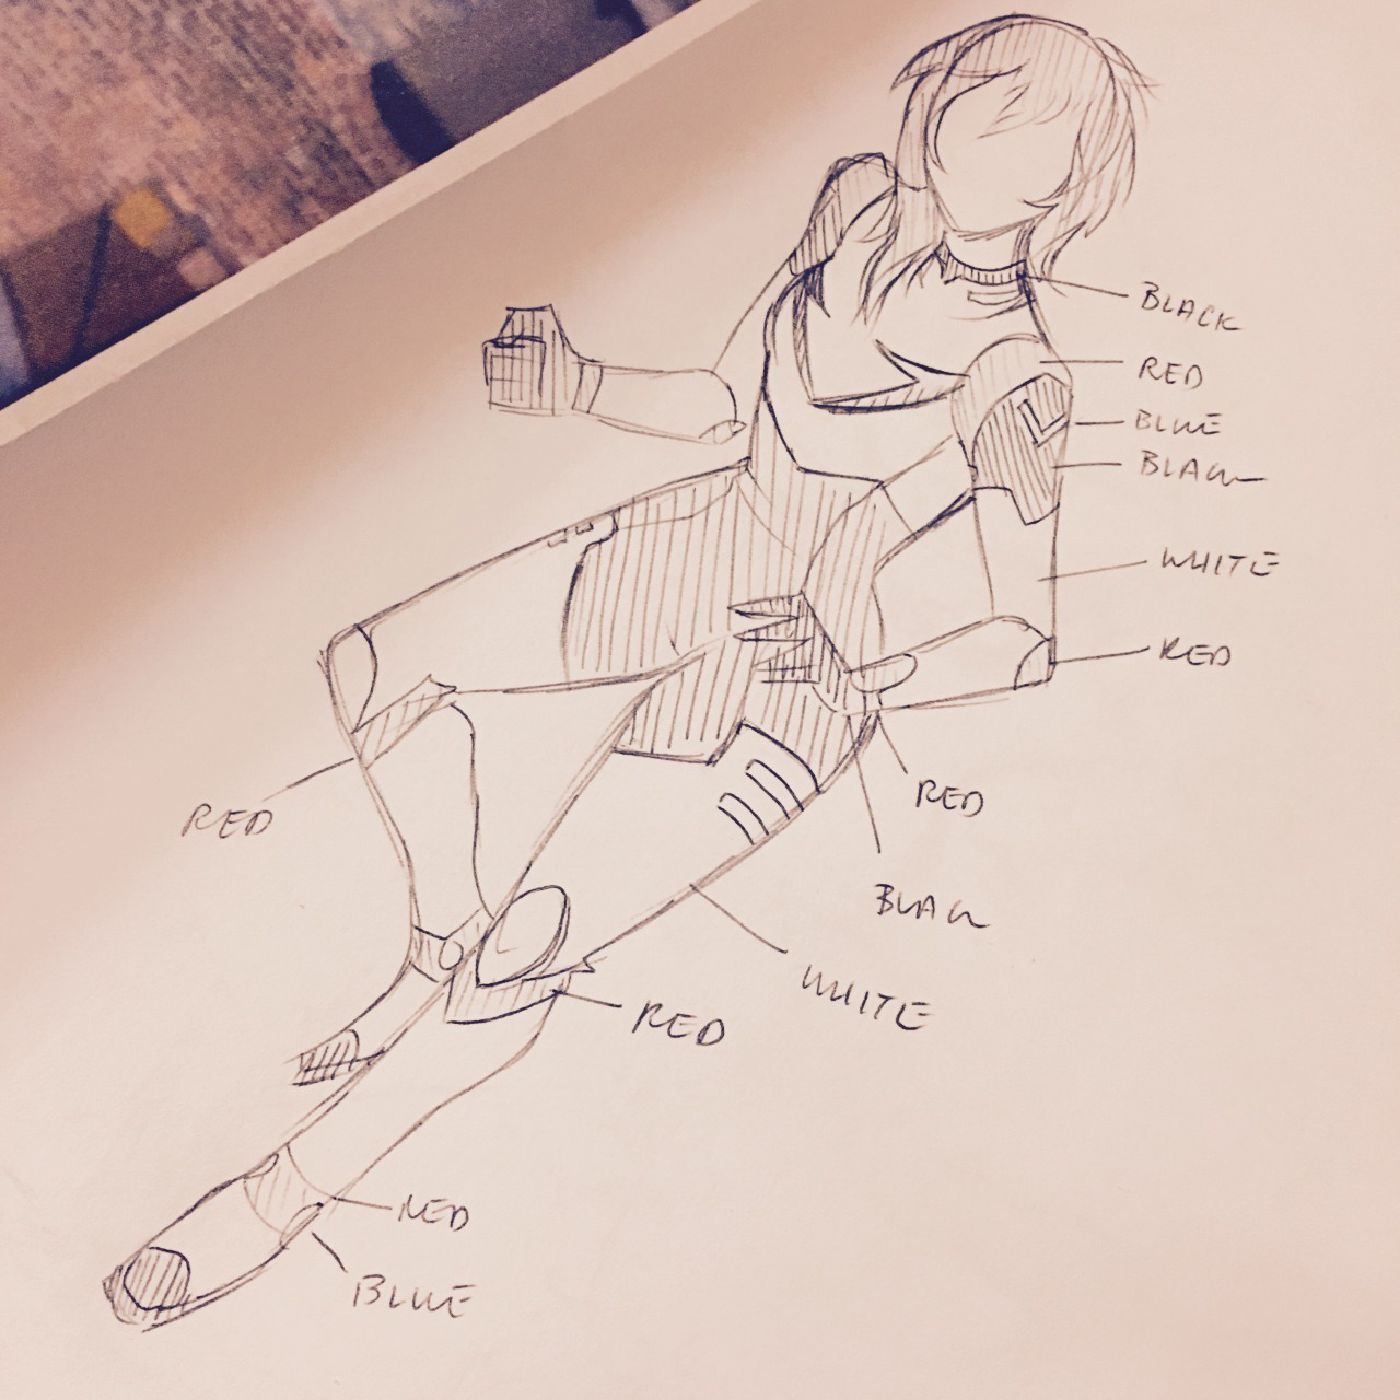 BLACK
RED
BLUE
BLACK
WHITE
RED
RED
RED
BLACK
WHITE
RED
RED
BLUE